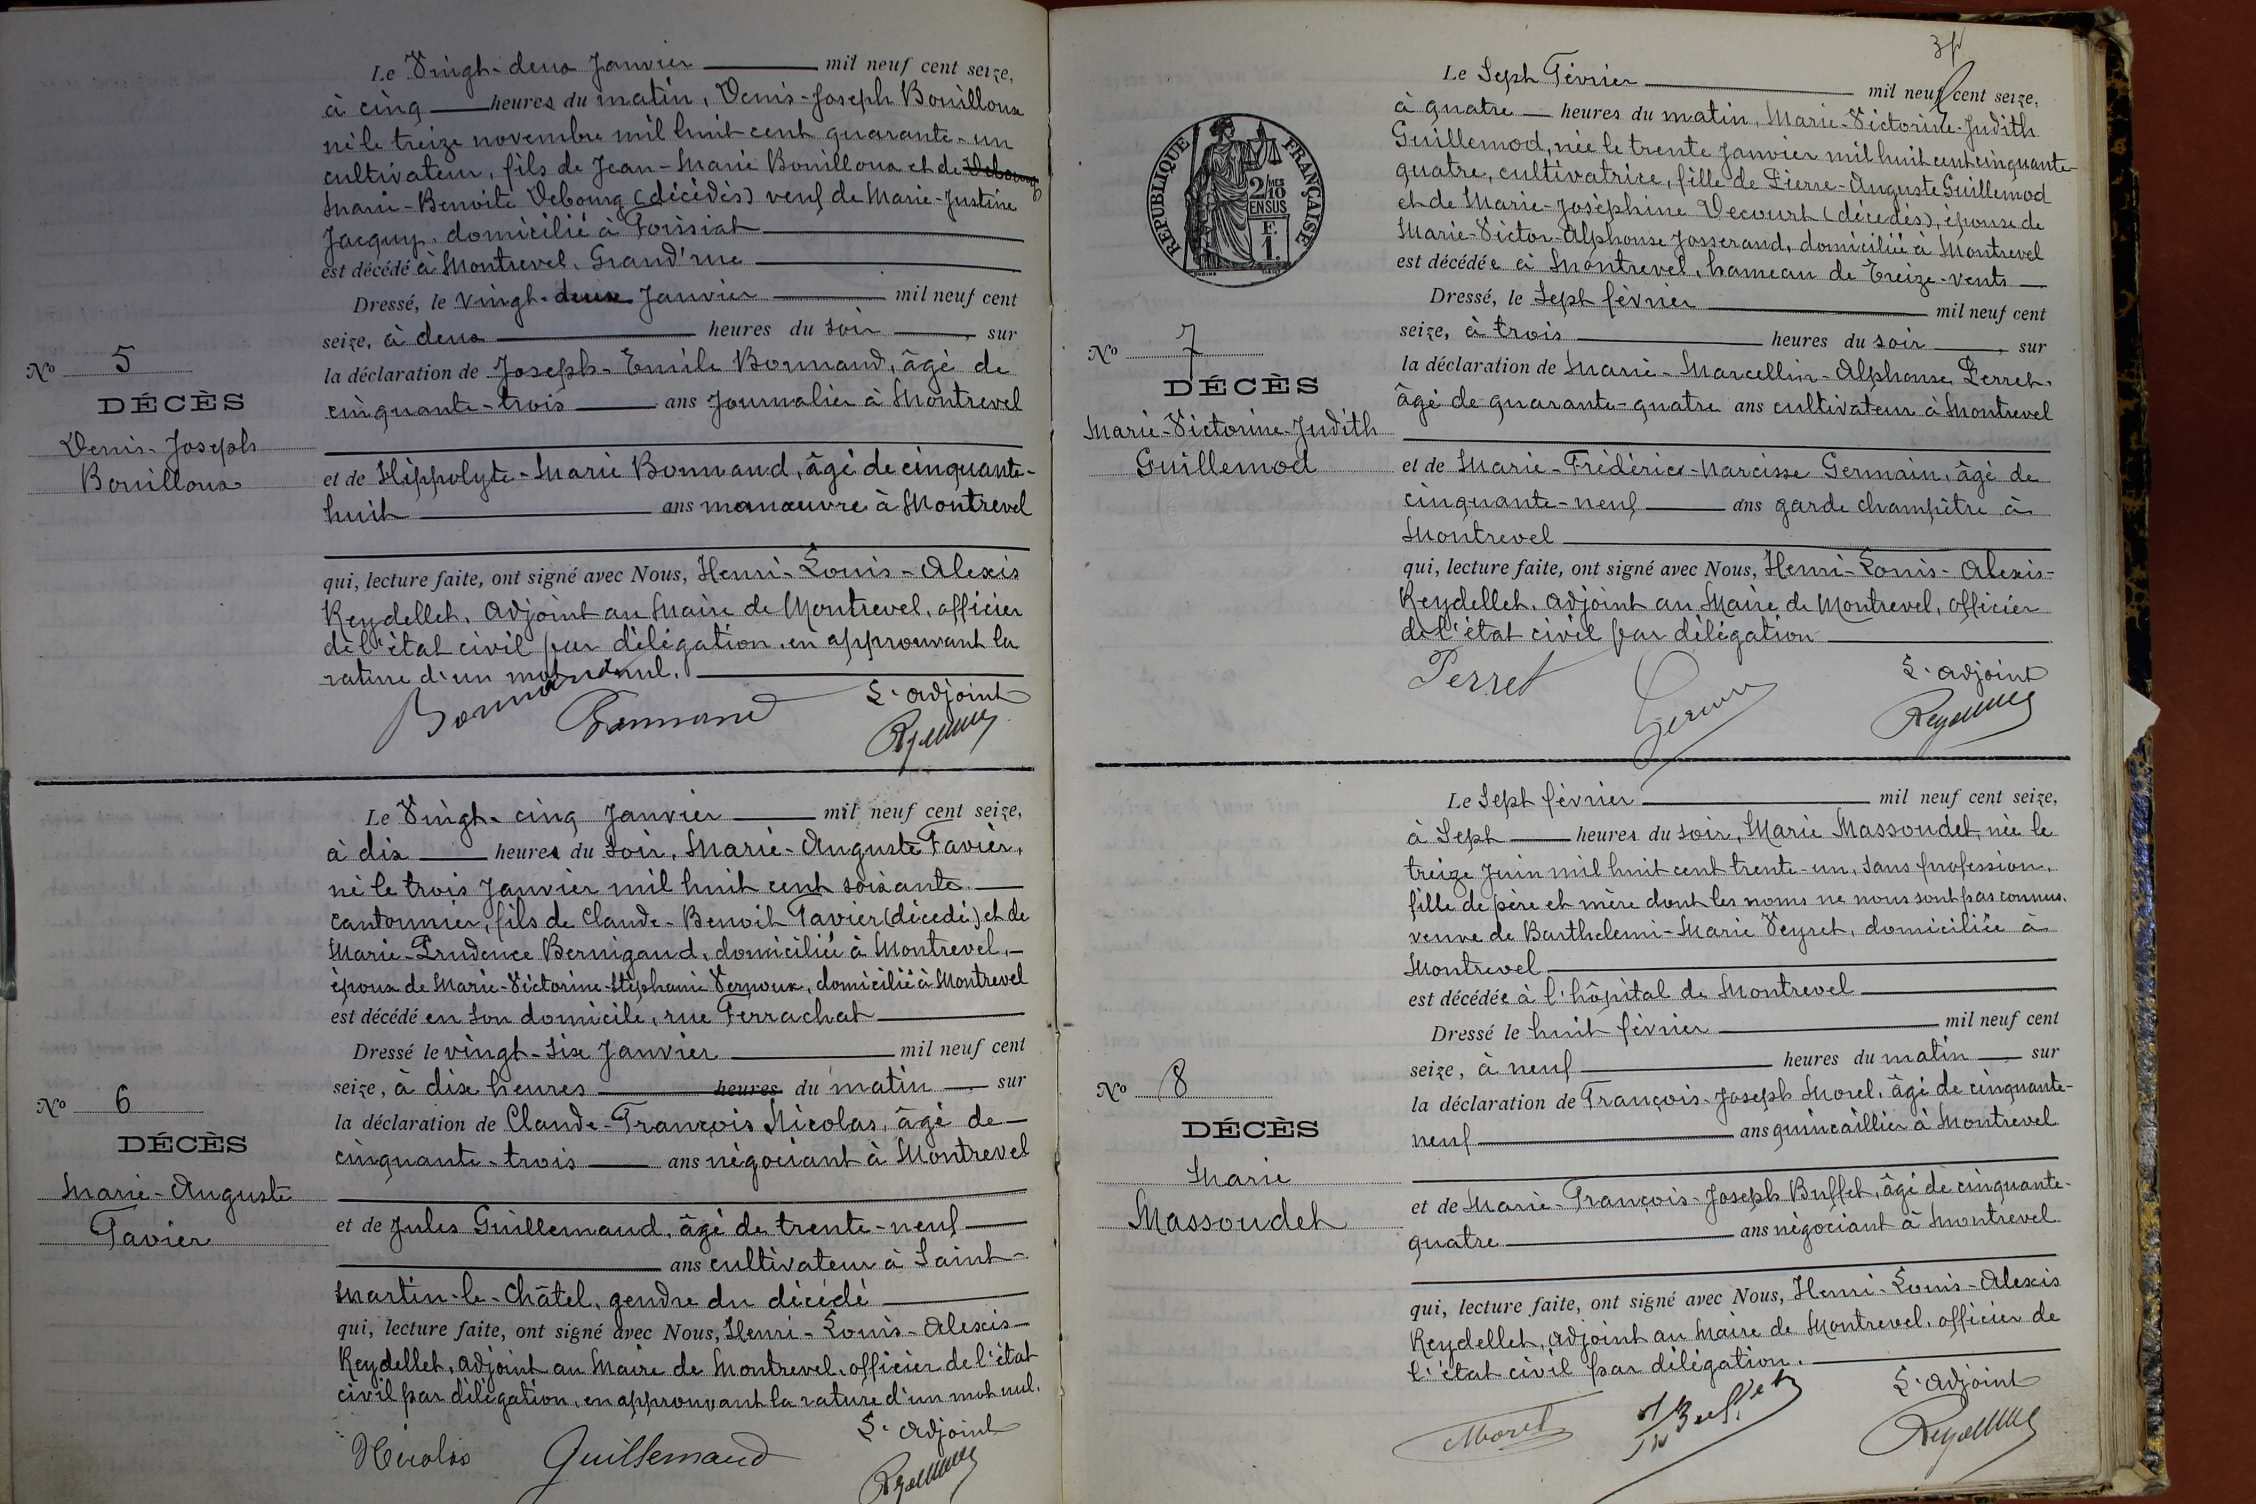 Le Vingt-deux Janvier mil neuf cent seize,
à cinq heures du matin, Denis-Joseph Bouilloux
né le treize novembre mil huit cent quarante-un
cultivateur, fils de Jean-Marie Bouilloux et de Debourg
Marie-Benoîte Debourg (décédés) veuf de Marie-Justine
Jacquy, domicilié à Foissiat
est décédé à Montrevel, Grand'rue
Dressé, le vingt-deux Janvier mil neuf cent
seize, à deux heures du soir, sur
No 5
la déclaration de Joseph-Emile Bonnand, âgé de
DÉCÈS
cinquante-trois ans Journalier à Montrevel
Denis-Joseph
Bouilloux
et de Hippolyte-Marie Bonnand, âgé de cinquante-
huit ans manœuvre à Montrevel
qui, lecture faite, ont signé avec Nous, Henri-Louis-Alexis
Reydellet, adjoint au Maire de Montrevel, officier
de l'état civil par délégation, en approuvant la
rature d'un mot nul.
L'adjoint
Bonnand Bonnand
Le Vingt-cinq Janvier mil neuf cent seize,
à dix heures du soir, Marie-Auguste Favier,
né le trois Janvier mil huit cent soixante
cantonnier, fils de Claude-Benoit Favier (décédé) et de
Marie-Prudence Bernigaud, domiciliée à Montrevel,
époux de Marie-Victorine-Stéphanie Vernoux, domicilié à Montrevel
est décédé en son domicile, rue Ferrachat
Dressé le vingt-six Janvier mil neuf cent
seize, à dix heures heures du matin, sur
No 6
la déclaration de Claude-François Nicolas, âgé de
DÉCÈS
cinquante-trois ans négociant à Montrevel
Marie-Auguste
Favier
et de Jules Guillemaud, âgé de trente-neuf
ans cultivateur à Saint-
Martin-le-Châtel, gendre du décédé
qui, lecture faite, ont signé avec Nous, Henri-Louis-Alexis
Reydellet, adjoint au Maire de Montrevel, officier de l'état
civil par délégation, en approuvant la rature d'un mot nul.
L'adjoint
Nicolas Guillemaud
Le Sept Février mil neuf cent seize,
à quatre heures du matin, Marie-Victorine-Judith
Guillemod, née le trente Janvier mil huit cent cinquante-
quatre, cultivatrice, fille de Pierre-Auguste Guillemod
et de Marie-Joséphine Decourt (décédés), épouse de
Marie-Victor-Alphonse Josserand, domiciliée à Montrevel
est décédée à Montrevel, hameau de Treize-vents
RÉPUBLIQUE FRANÇAISE
2/10 MES
EN SUS
F.
1.
Dressé, le Sept février mil neuf cent
seize, à trois heures du soir, sur
No 7
la déclaration de Marie-Marcellin-Alphonse Perret,
DÉCÈS
âgé de quarante-quatre ans cultivateur à Montrevel
Marie-Victorine-Judith
Guillemod
et de Marie-Frédéric-Narcisse Germain, âgé de
cinquante-neuf ans garde champêtre à
Montrevel
qui, lecture faite, ont signé avec Nous, Henri-Louis-Alexis-
Reydellet, adjoint au Maire de Montrevel, officier
de l'état civil par délégation
L'adjoint
Perret
Le Sept février mil neuf cent seize,
à Sept heures du soir, Marie Massoudet, née le
treize Juin mil huit cent trente-un, sans profession,
fille de père et mère dont les noms ne nous sont pas connus,
veuve de Barthelemi-Marie Veyret, domiciliée à
Montrevel
est décédée à l'hôpital de Montrevel
Dressé le huit février mil neuf cent
seize, à neuf heures du matin, sur
No 8
la déclaration de François-Joseph Morel, âgé de cinquante-
DÉCÈS
neuf ans quincaillier à Montrevel
Marie
Massoudet
et de Marie-François-Joseph Buffet, âgé de cinquante-
quatre ans négociant à Montrevel
qui, lecture faite, ont signé avec Nous, Henri-Louis-Alexis
Reydellet, adjoint au Maire de Montrevel, officier de
l'état civil par délégation.
L'adjoint
Morel Buffet